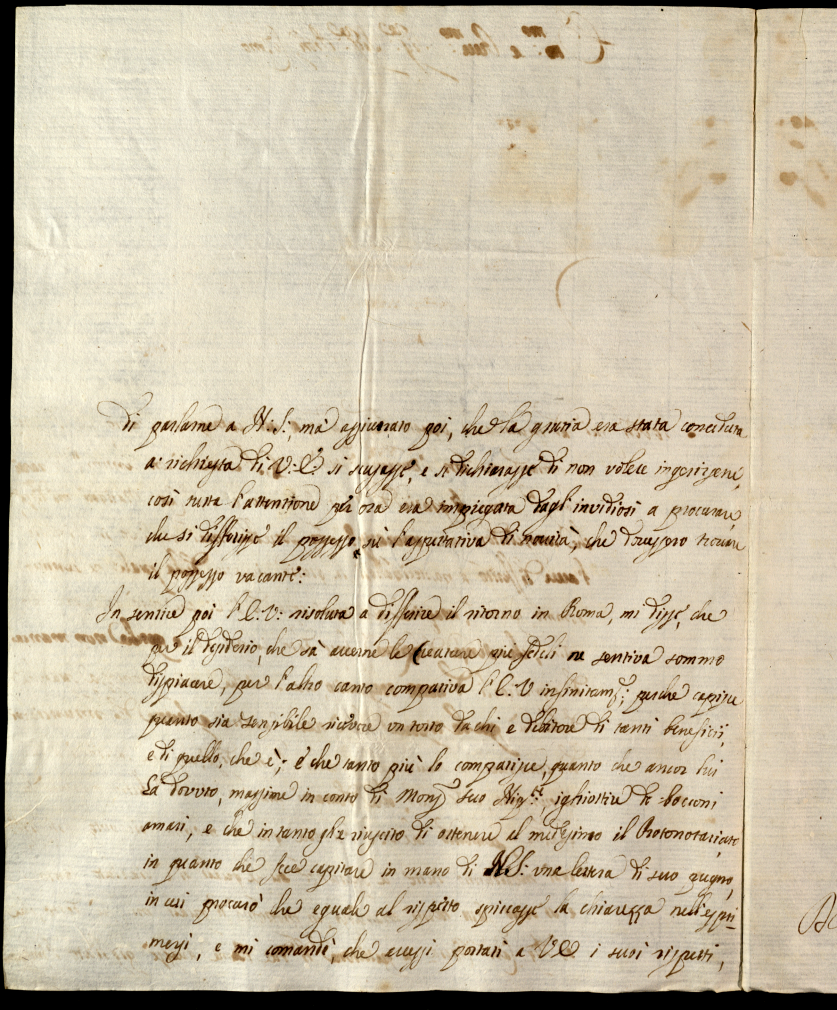 di parlarne a N: S:, mà assicurato poi, che la gratia era stata conceduta
a' richiesta di V: E. si scusasse, e si dichiarasse di non volere ingerirsene,
così tutta l'attentione per ora era impiegata dagl' invidiosi a procurare,
che si differisse il possesso sù l'aspettativa di novità, che dovessero trovare
il possesso vacante:
In sentire poi l'E. V: risoluta a differire il ritorno in Roma, mi disse, che
per il desiderio, che hà averne le Creature più fedeli ne sentiva sommo
dispiacere, per l'altro canto compativa l'E. V infinitam:, perche capisce
quanto sia sensibile ricevere un torto da chi e debitore di tanti beneficii,
e di quello, che è; e che tanto più lo compatisce, quanto che ancor lui
hà dovuto, massime in conto di Mons: suo Nip:, ighiottire de bocconi
amari, e che intanto gl'è riuscito di ottenere al medesimo il Protonotariato
in quanto che fece capitare in mano di N. S: una lettera di suo pugno,
in cui procurò che eguale al rispetto spiccasse la chiarezza nell'espri-
mersi, e mi comandò, che avessi portati a V E i suoi rispetti,